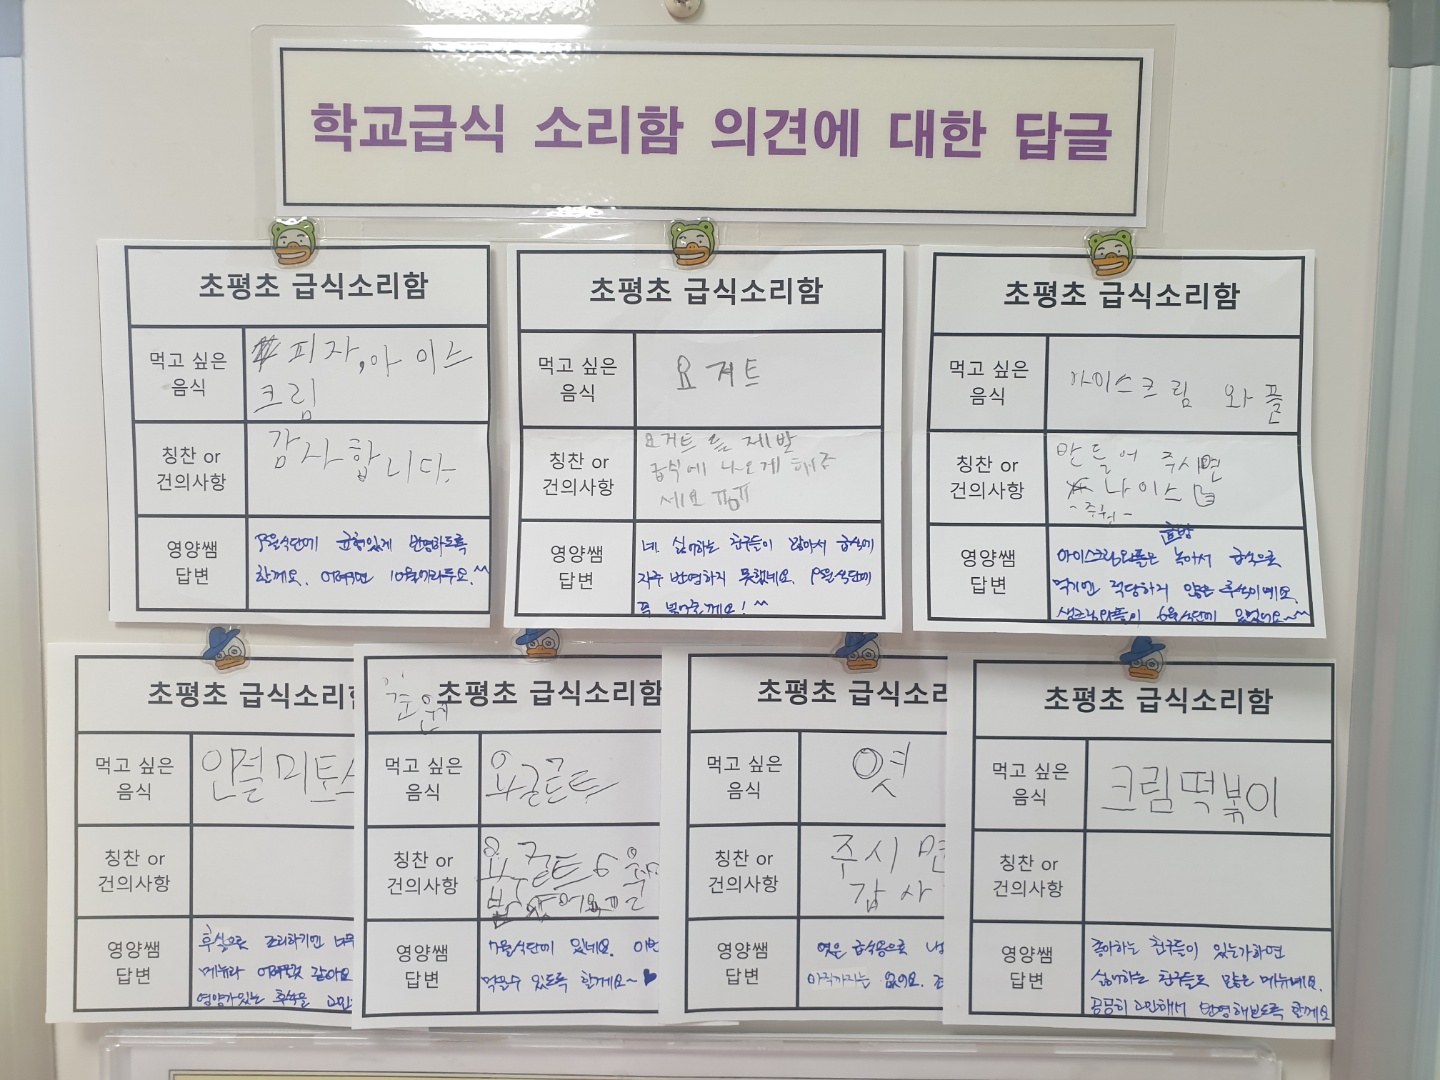 학교급식 소리함 의견에 대한 답글
초평초 급식소리함
먹고 싶은
음식
피자, 아이스
크림
칭찬 or
건의사항
감사합니다.
영양쌤
답변
9월식단에 균형있게 반영하도록
할께요. 어려우면 10월이라두요.^^
초평초 급식소리함
먹고 싶은
음식
요거트
칭찬 or
건의사항
요거트를 제발
급식에 나오게 해주
세요 ㅠㅠ
영양쌤
답변
네 싫어하는 친구들이 많아서 급식에
자주 반영하지 못했네요. 9월식단에
꼭 넣어줄께요! ^^
초평초 급식소리함
먹고 싶은
음식
아이스크림 와플
칭찬 or
건의사항
만들어 주시면
나이스
영양쌤
답변
금방
아이스크림와플은 녹아서 급식으로
먹기엔 적당하지 않은 후식이네요.
생크림와플이 6월식단에 있었어요~^^
초평초 급식소리함
먹고 싶은
음식
인절미토스
칭찬 or
건의사항
영양쌤
답변
후식으로 조리하기엔 너무
메뉴라 어려울것 같아요
영양가있는 후식을 고민
초평초 급식소리함
먹고 싶은
음식
요굴르트
칭찬 or
건의사항
영양쌤
답변
7월식단에 있네요. 이번
먹을수 있도록 할게요~♥
초평초 급식소리
먹고 싶은
음식
엿
칭찬 or
건의사항
주시면
감사
영양쌤
답변
엿은 급식용으로 나
아직까지는 없어요.
초평초 급식소리함
먹고 싶은
음식
크림떡볶이
칭찬 or
건의사항
영양쌤
답변
좋아하는 친구들이 있는가하면
싫어하는 친구들도 많은 메뉴네요.
곰곰히 고민해서 반영해보도록 할께요